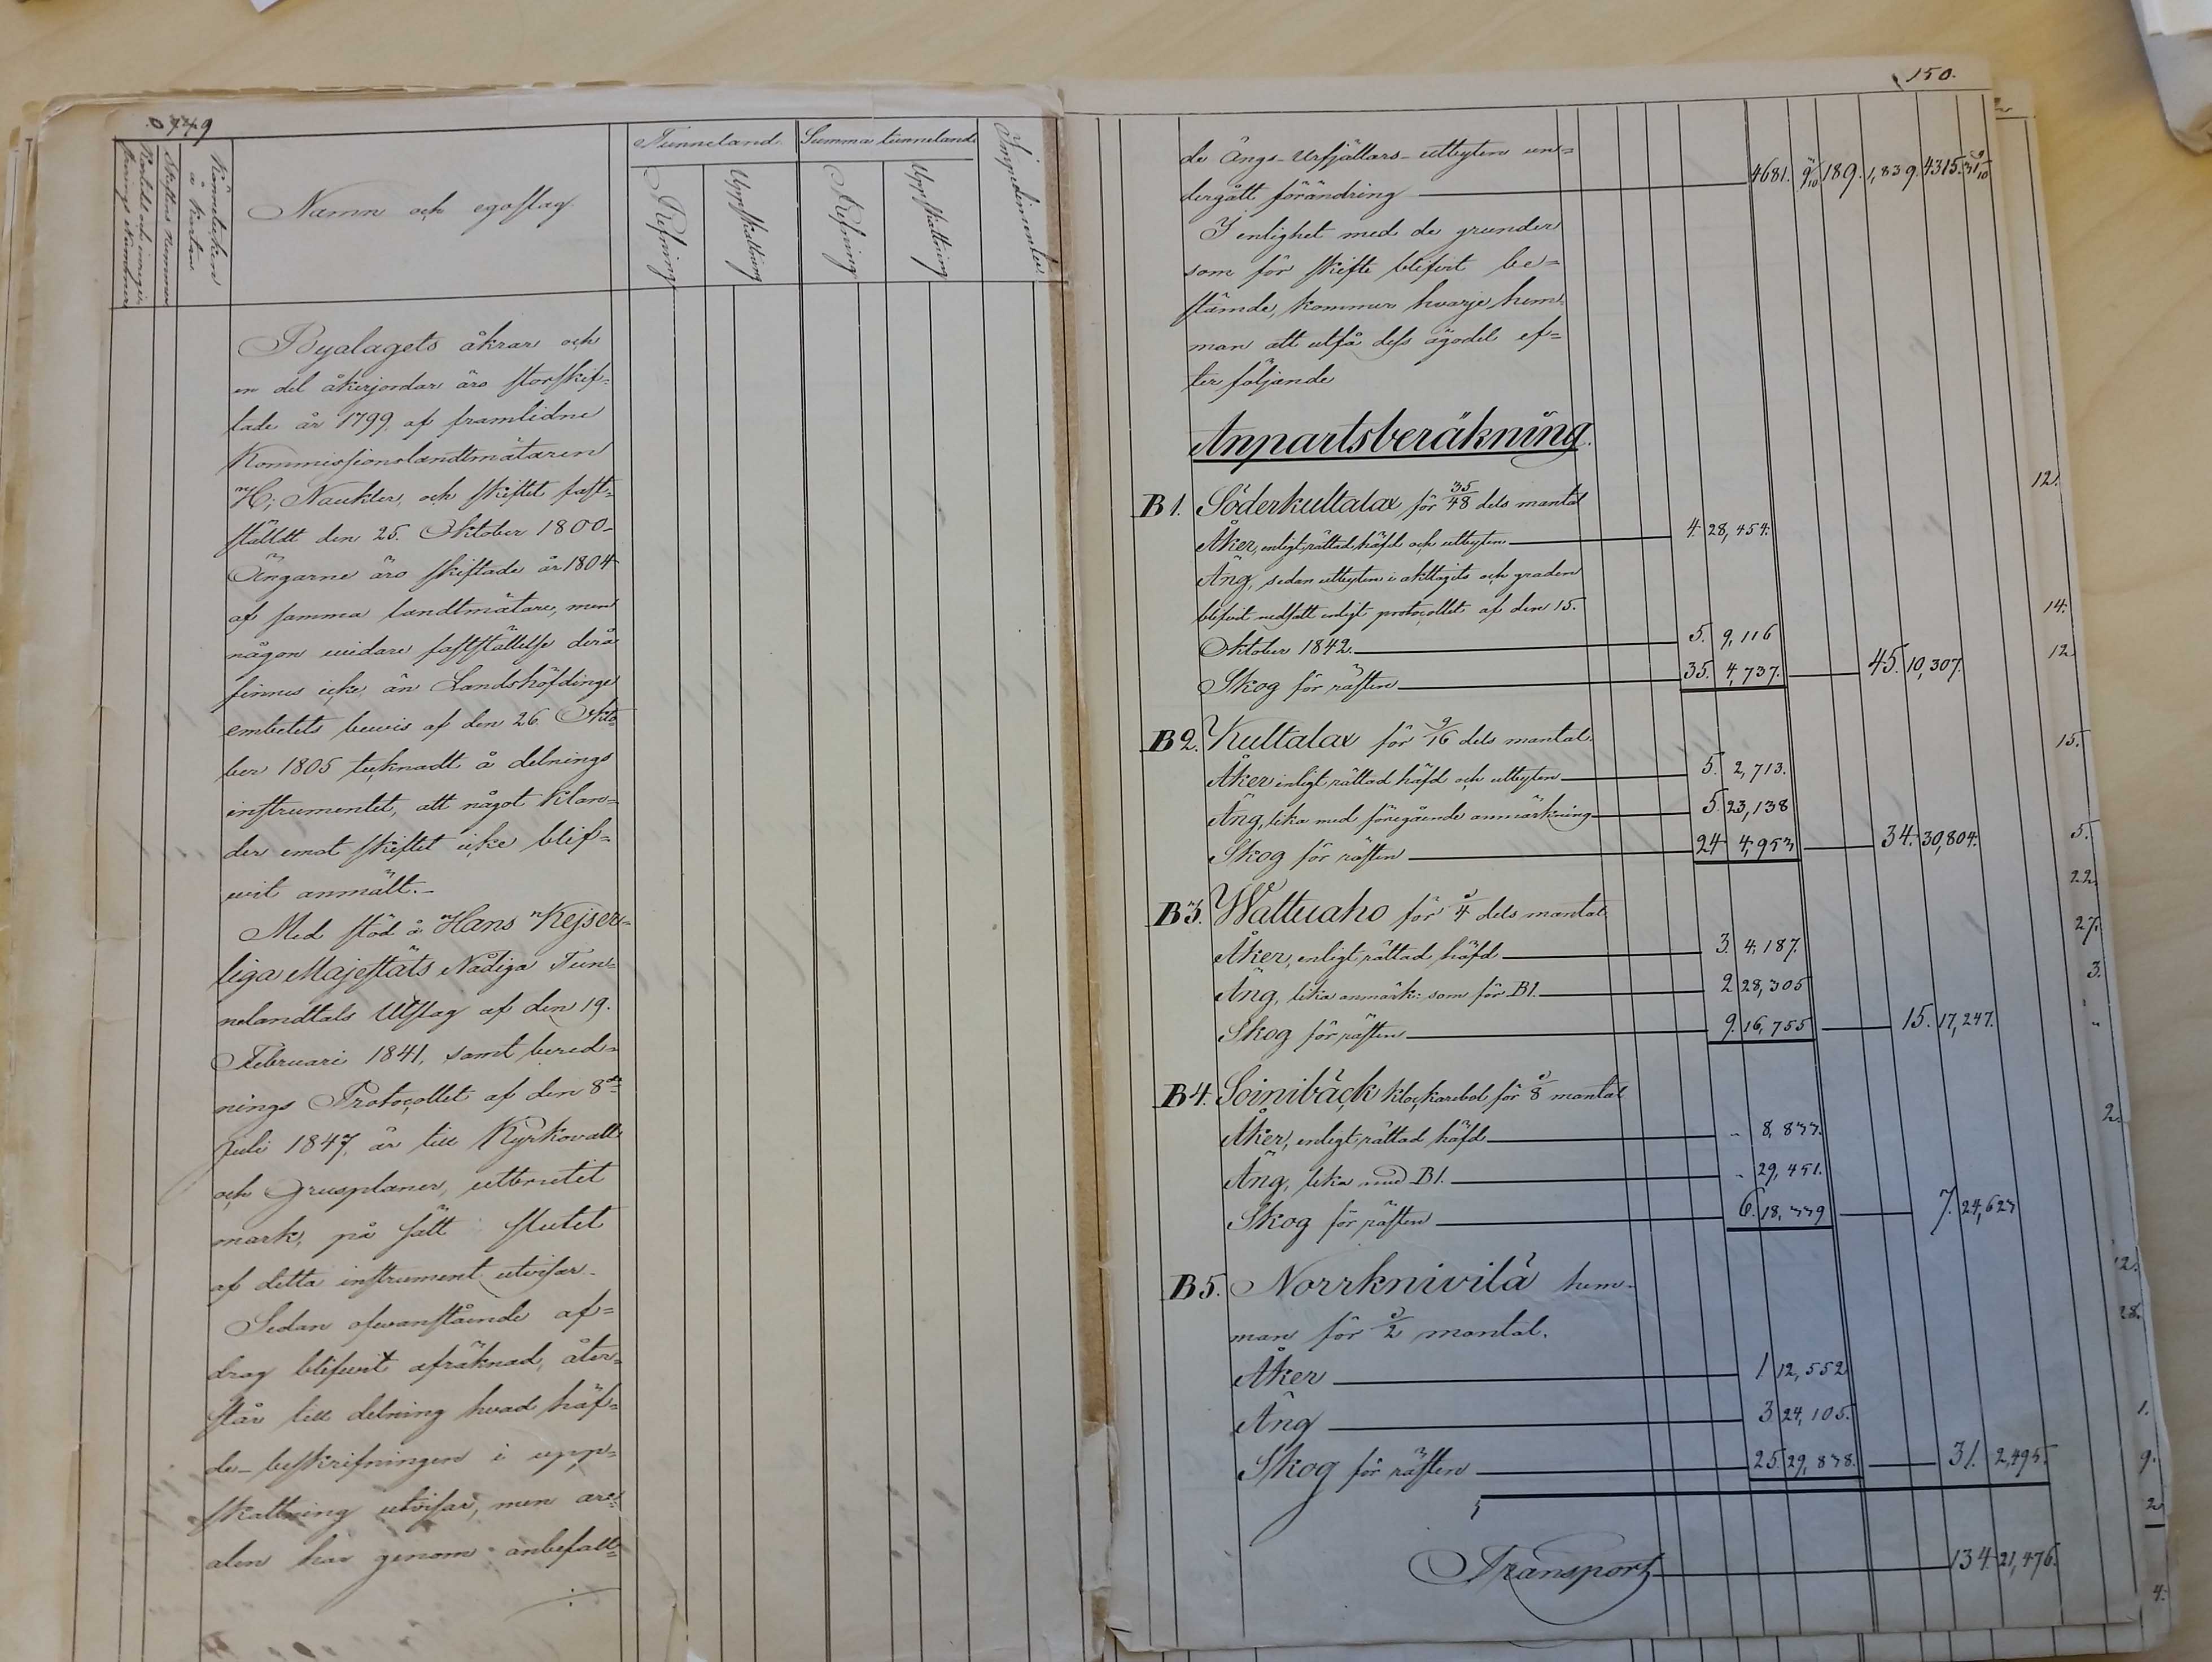 Kartblads och inegornes nummer
Skiftens Nummer
Kännetecken å Kartan
Namn och egoslag
Tunneland.
Refning
Uppskattning
Summa tunneland
Refning
Uppskattning
Impedimenter
Byalagets åkrar och
en del åkerjordar äro storskif=
tade år 1799 af framlidne
Kommissionslandtmätaren
H: Naukler, och skiftet fast=
ställdt den 25. Oktober 1800-
Ängarne äro skiftade år 1804
af samma landtmätare, men
någon widare fastställelse derå
finnes icke än Landshöfdinge
embetets bewis af den 26. Okto
ber 1805 tecknadt å delnings
instrumentet, att något klan=
der emot skiftet icke blif=
wit anmält.-
Med stöd å Hans Kejser=
liga Majestäts Nådiga Tun=
nelandtals Utslag af den 19.
Februari 1841, samt bered=
nings Protocollet af den 8de
Juli 1847, är till Kyrkovall
och Grusplaner, utbrutit
mark, på sätt slutet
af detta instrument utvisar.
Sedan ofwanstående af=
drag blifwit afräknad, åter=
står till delning hvad häf=
de-beskrifningen i upp=
skattning utvisar, men are=
alen har genom anbefall=
150.
de Ängs-Urfjällars-utbyten un=
dergått förändring 4681. 189. 1,839. 4315.
I enlighet med de grunder
som för skifte blifvit be=
stämde, kommer hvarje hem=
man att utfå dess ägodel ef=
ter följande
Anpartsberäkning.
B 1. Söderkultalax för 35/48 dels mantal
Åker, enligt rättad häfd och utbyten 4. 28,454.
Äng, sedan utbyten i akttagits och graden
blifvit nedsatt enligt protocollet af den 15.
Oktober 1842. 5. 9,116
Skog för räften 35. 4,737. 45. 10,307.
B 2. Kultalax för 9/16 dels mantal.
Åker enligt rättad häfd och utbyten 5. 2,713.
Äng, lika med föregående anmärkning 5. 23,138
Skog för räften 24 4,953 34. 30,804.
B 3. Wattuaho för 1/4 dels mantal
Åker, enligt rättad häfd 3. 4,187.
Äng, lika anmärk: som för B1. 2 28,305
Skog för räften 9. 16,755 15. 17,247.
B 4. Soinibäck klockarebol för 1/8 mantal
Åker, enligt rättad häfd - 8,833.
Äng, lika med B1. - 29,451.
Skog för räften 6. 18,339 7. 24,623
B 5. Norrknivilä hem-
man för 1/2 mantal.
Åker 1 12,552
Äng 3 24,105.
Skog för räften 25 29,838. 31. 2,495.
Transport 134 21,476.
12.
14.
12
15.
5.
22.
27.
3.
2.
12.
28.
1.
9.
2
4.